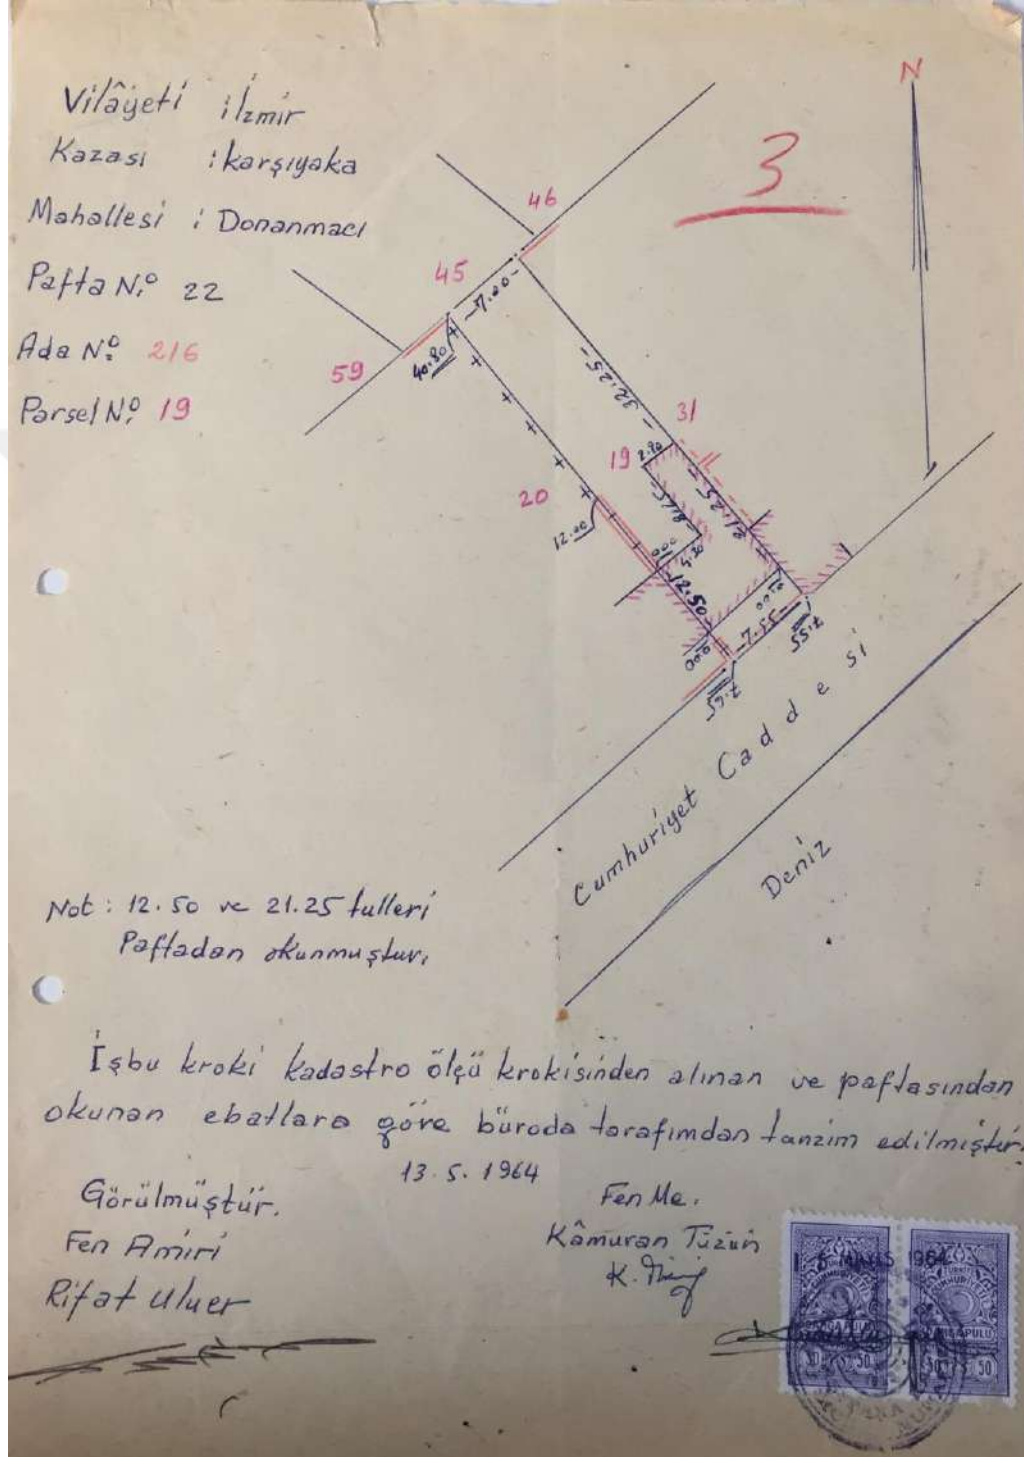 Vilâyeti : İzmir
Kazası : Karşıyaka
Mahallesi : Donanmacı
Pafta No 22
Ada No 216
Parsel No 19
N
3
46
45
-7.00-
59
40.80
32.25-
31
19
2.80
20
8.15-
21.25-
12.00
0.00
4.30
12.50
0.00
-7.55-
7.55
0.00
7.65
Cumhuriyet Caddesi
Deniz
Not : 12.50 ve 21.25 tulleri
Paftadan okunmuştur.
İşbu kroki kadastro ölçü krokisinden alınan ve paftasından
okunan ebatlara göre büroda tarafımdan tanzim edilmiştir.
13.5.1964
Görülmüştür.
Fen Me.
Fen Amiri
Kâmuran Tüzün
Rifat Uluer
MAYIS 1964
DAMGA PULU
50 50